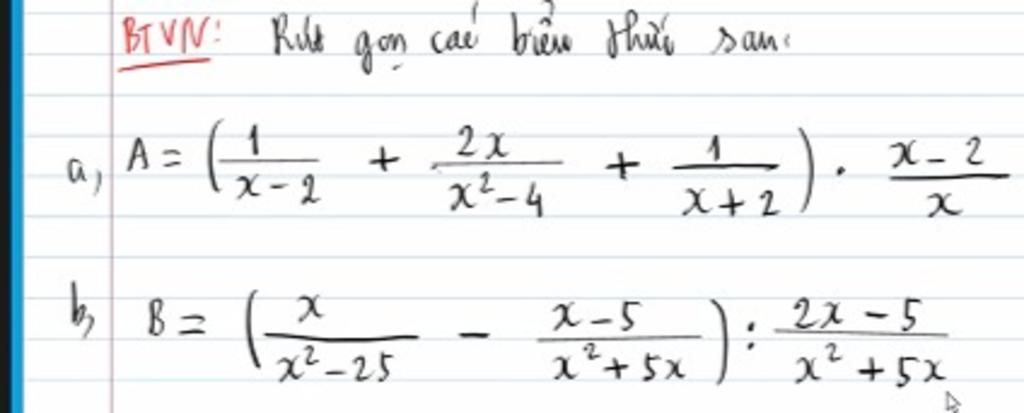 BTVN: Rút gọn các biểu thức sau:
a, A = (1/(x-2) + 2x/(x²-4) + 1/(x+2)) · (x-2)/x
b, B = (x/(x²-25) - (x-5)/(x²+5x)) : (2x-5)/(x²+5x)